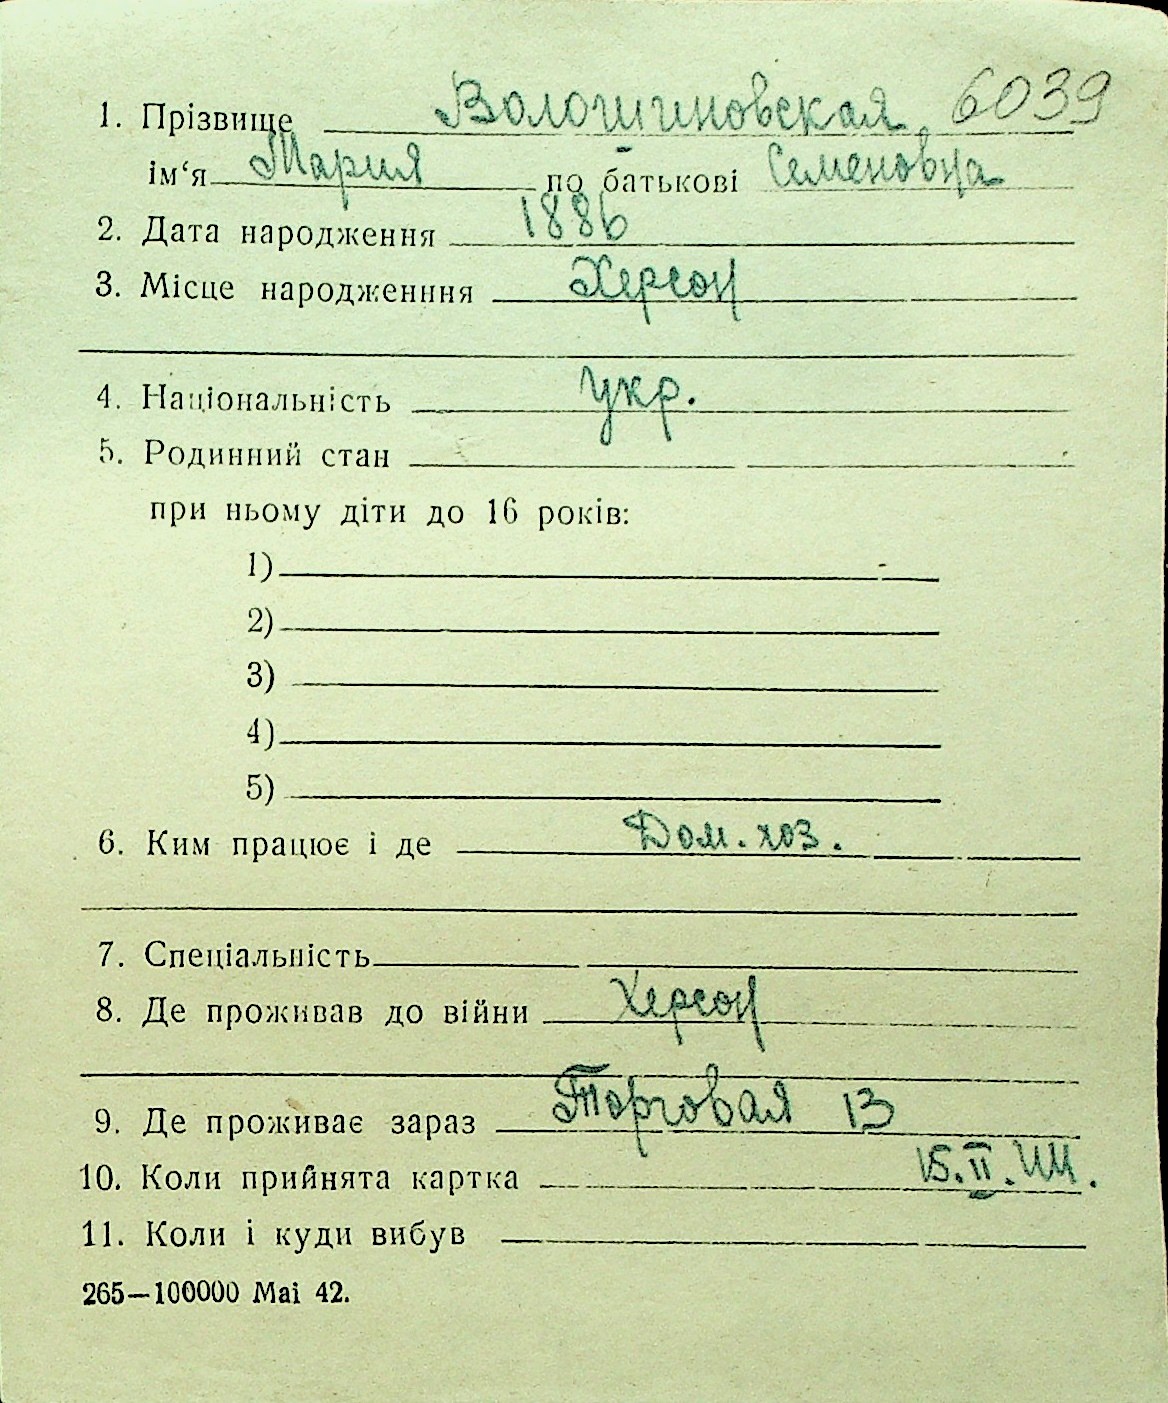 1. Прізвище Волошиновская 6039
ім‘я Мария по батькові Семеновна
2. Дата народження 1886
3. Місце народженння Херсон
4. Національність укр.
5. Родинний стан
при ньому діти до 16 років:
1)
2)
3)
4)
5)
6. Ким працює і де Дом. хоз.
7. Спеціальність
8. Де проживав до війни Херсон
9. Де проживає зараз Торговая 13
10. Коли прийнята картка 15.II.
11. Коли і куди вибув
265—100000 Маі 42.